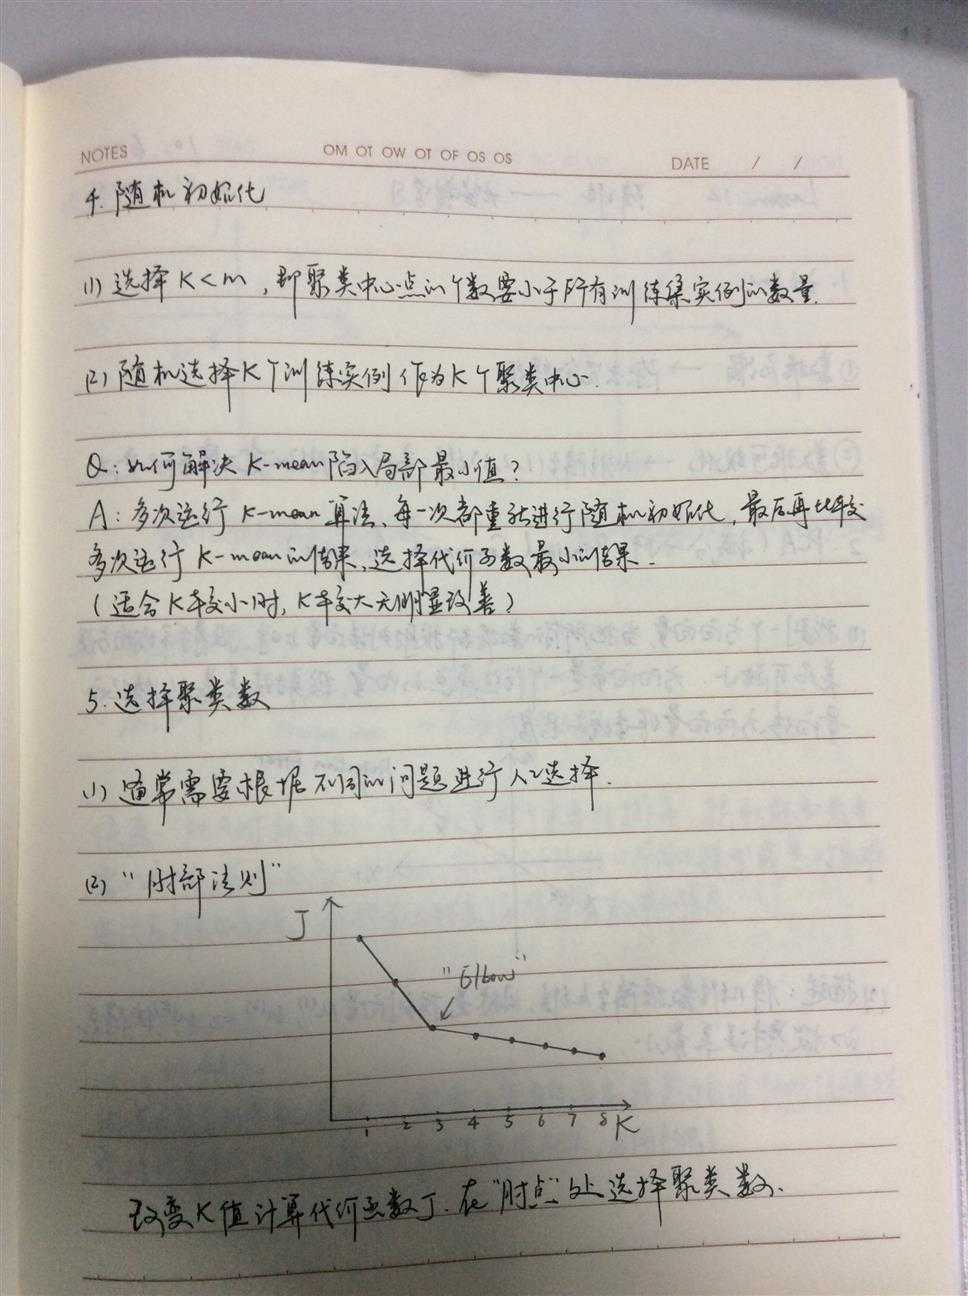 NOTES OM OT OW OT OF OS OS DATE / /
4. 随机初始化
(1) 选择 K<m, 即聚类中心点的个数要小于所有训练集实例的数量.
(2) 随机选择K个训练实例作为K个聚类中心.
Q: 如何解决 K-mean陷入局部最小值?
A: 多次运行 K-mean算法, 每一次都重新进行随机初始化, 最后再比较
多次运行 K-mean的结果, 选择代价函数最小的结果.
(适合K较小时, K较大无明显改善)
5. 选择聚类数
(1) 通常需要根据不同的问题进行人工选择.
(2) "肘部法则"
J
"Elbow"
1 2 3 4 5 6 7 8 K
改变K值计算代价函数J. 在"肘点"处选择聚类数.